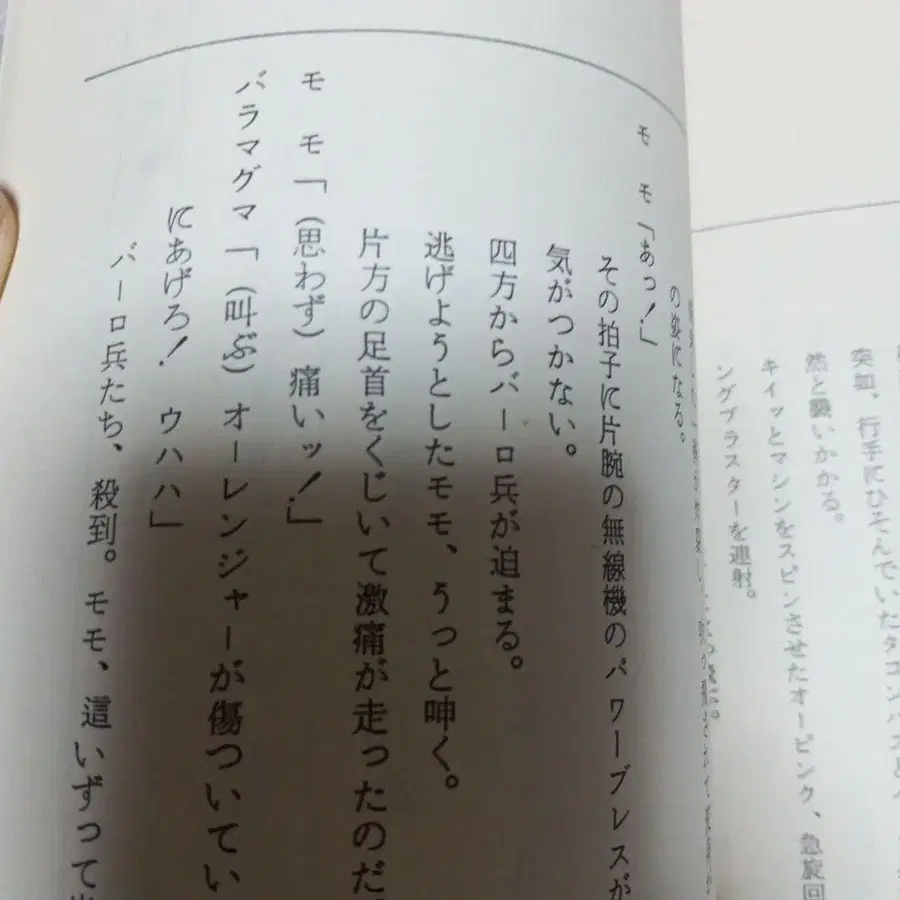 突如、行手にひそんでいたタコンパスが
然と襲いかかる。
キイッとマシンをスピンさせたオーピンク、急旋回
ングブラスターを連射。
の姿になる。
モ モ「あっ！」
その拍子に片腕の無線機のパワーブレスが
気がつかない。
四方からバーロ兵が迫まる。
逃げようとしたモモ、うっと呻く。
片方の足首をくじいて激痛が走ったのだ。
モ モ「（思わず）痛いッ！」
バラマグマ「（叫ぶ）オーレンジャーが傷ついてい
にあげろ！ ウハハ」
バーロ兵たち、殺到。モモ、這いずって